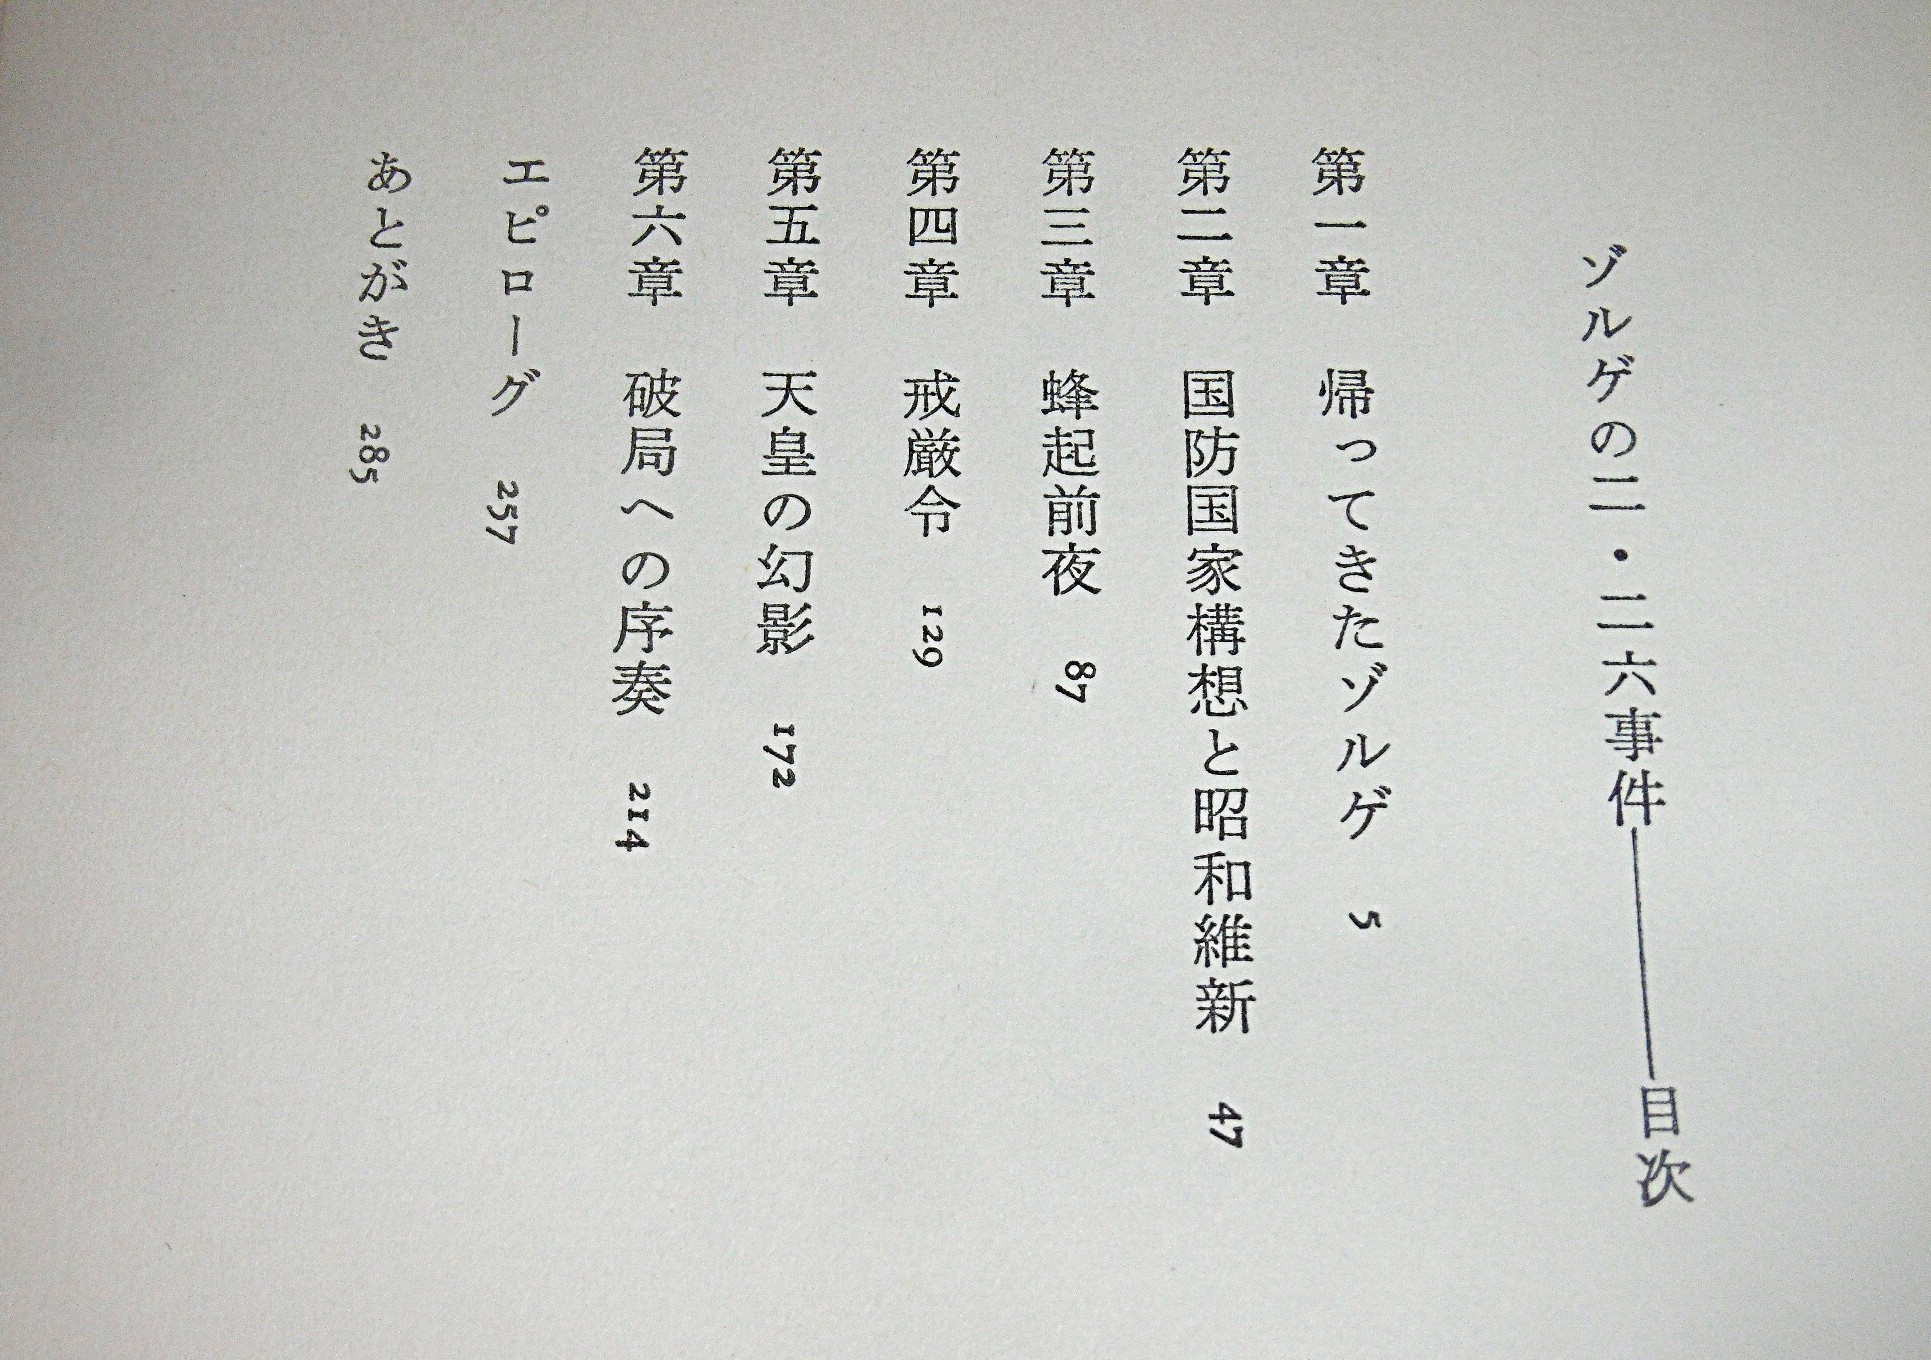 ゾルゲの二・二六事件――目次
第一章　帰ってきたゾルゲ　5
第二章　国防国家構想と昭和維新　47
第三章　蜂起前夜　87
第四章　戒厳令　129
第五章　天皇の幻影　172
第六章　破局への序奏　214
エピローグ　257
あとがき　285